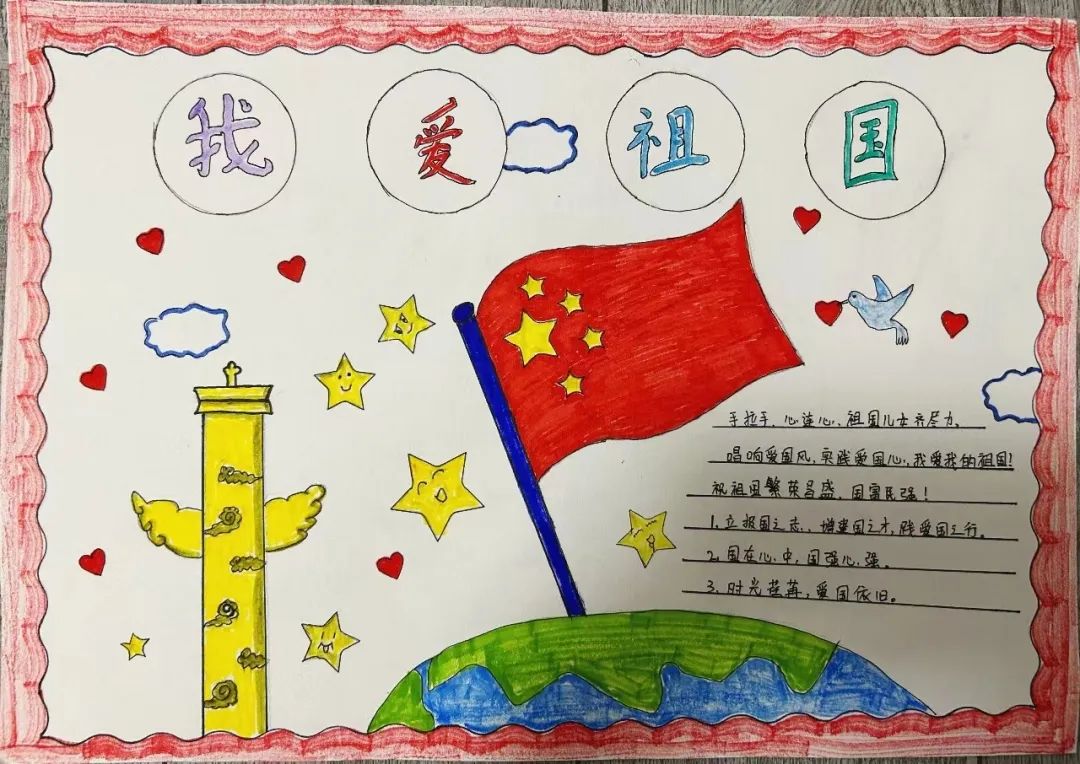 我爱祖国
手拉手，心连心，祖国儿女齐尽力。
唱响爱国风，实践爱国心，我爱我的祖国！
祝祖国繁荣昌盛，国富民强！
1.立报国之志，增建国之才，践爱国之行。
2.国在心中，国强心强。
3.时光荏苒，爱国依旧。